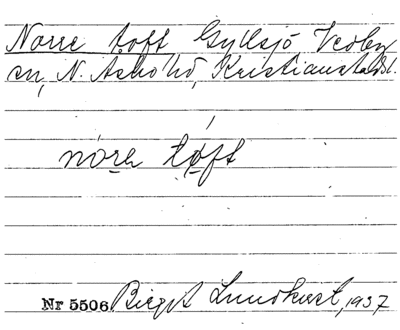 Norre toft Gyllsjö Vedby
sn, N. Åsbo hd, Kristianstads l.
nórə tǿft
Nr 5506 Birgit Lundkvist, 1937